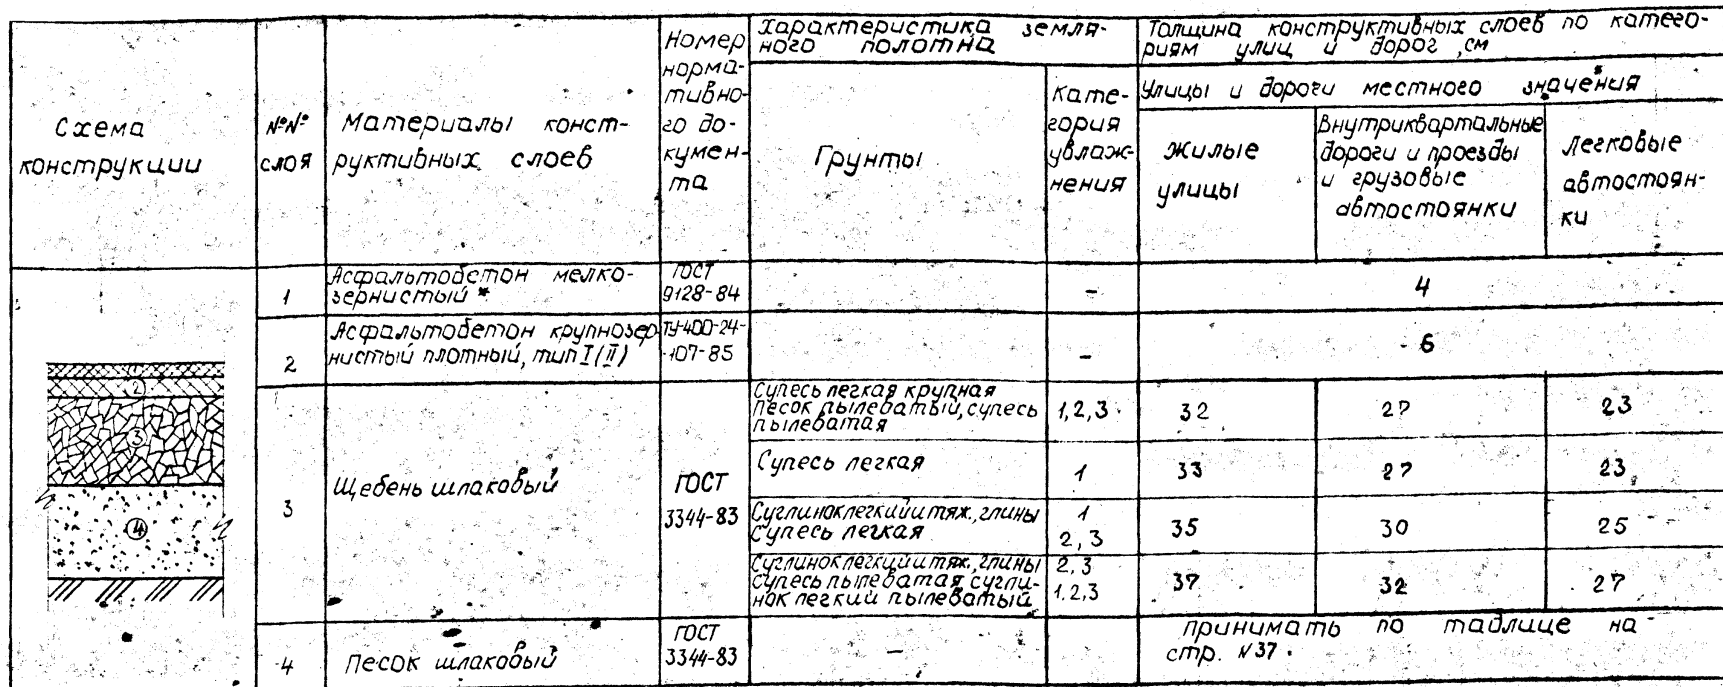 Схема
конструкции
№№
слоя
Материалы конст-
руктивных слоев
Номер
норма-
тивно-
го до-
кумен-
та
Характеристика земля-
ного полотна
Грунты
Кате-
гория
увлаж-
нения
Толщина конструктивных слоев по катего-
риям улиц и дорог, см
Улицы и дороги местного значения*
Жилые
улицы
Внутриквартальные
дороги и проезды
и грузовые
автостоянки
Легковые
автостоян-
ки
1
Асфальтобетон мелко-
зернистый *
ГОСТ
9128-84
-
4
2
Асфальтобетон крупнозер-
нистый плотный, тип I (II)
ТУ-400-24-
-107-85
-
6
3
Щебень шлаковый
ГОСТ
3344-83
Супесь легкая крупная
Песок пылеватый, супесь
пылеватая
1,2,3
32
27
23
Супесь легкая
1
33
27
23
Суглинок легкий и тяж., глины
Супесь легкая
1
2,3
35
30
25
Суглинок легкий и тяж., глины
Супесь пылеватая, сугли-
нок легкий пылеватый
2,3
1,2,3
37
32
27
4
Песок шлаковый
ГОСТ
3344-83
-
принимать по таблице на
стр. №37.
1
2
3
4